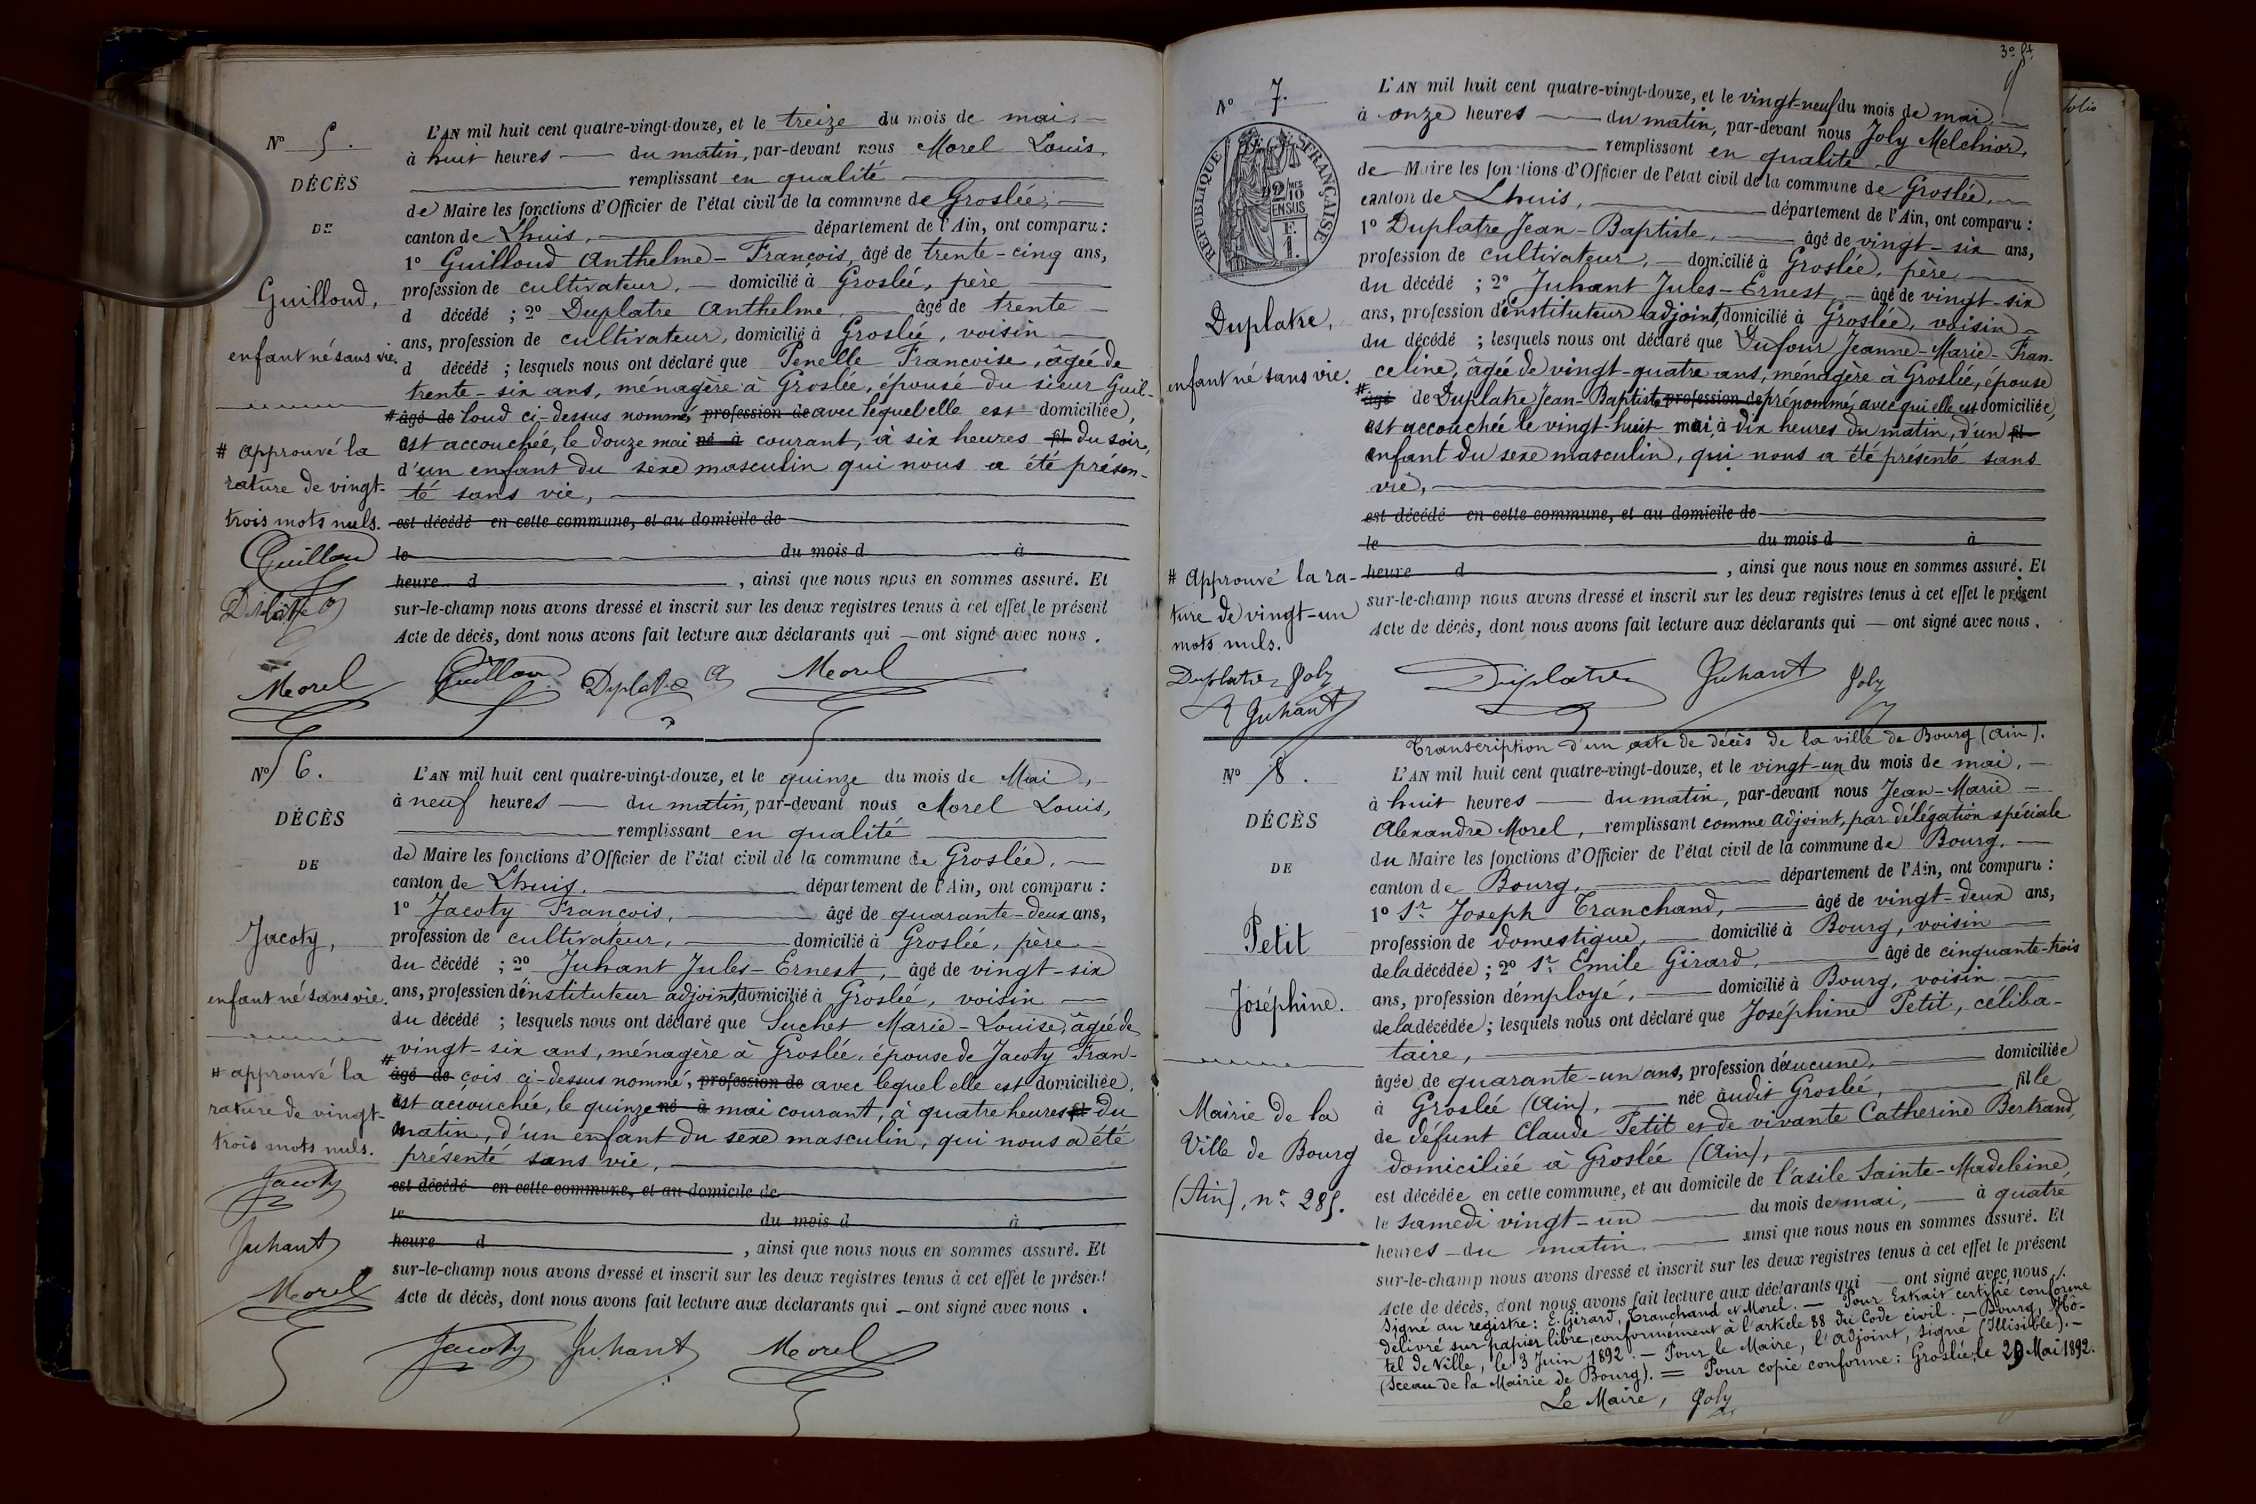 N° 5.
DÉCÈS
DE
Guilloud,
enfant né sans vie.
# approuvé la
rature de vingt-
trois mots nuls.
Guilloud
Duplatre
Morel
L'AN mil huit cent quatre-vingt-douze, et le treize du mois de mai,
à huit heures du matin, par-devant nous Morel Louis,
remplissant en qualité
de Maire les fonctions d'Officier de l'état civil de la commune de Groslée,
canton de Lhuis, département de l'Ain, ont comparu :
1° Guilloud Anthelme-François, âgé de trente-cinq ans,
profession de cultivateur, domicilié à Groslée, père
d décédé ; 2° Duplatre Anthelme, âgé de trente
ans, profession de cultivateur, domicilié à Groslée, voisin
d décédé ; lesquels nous ont déclaré que Penelle Françoise, âgée de
trente-six ans, ménagère à Groslée, épouse du sieur Guil-
# âgé de loud ci-dessus nommé, profession de avec lequel elle est domiciliée,
est accouchée, le douze mai né à courant, à six heures fil du soir,
d'un enfant du sexe masculin qui nous a été présen-
té sans vie,
est décédé en cette commune, et au domicile de
le du mois d à
heure d , ainsi que nous nous en sommes assuré. Et
sur-le-champ nous avons dressé et inscrit sur les deux registres tenus à cet effet le présent
Acte de décès, dont nous avons fait lecture aux déclarants qui ont signé avec nous.
Guilloud Duplatre A Morel
N° 6.
DÉCÈS
DE
Jacoty,
enfant né sans vie.
# approuvé la
rature de vingt-
trois mots nuls.
Jacoty
Juhant
Morel
L'AN mil huit cent quatre-vingt-douze, et le quinze du mois de Mai,
à neuf heures du matin, par-devant nous Morel Louis,
remplissant en qualité
de Maire les fonctions d'Officier de l'état civil de la commune de Groslée,
canton de Lhuis. département de l'Ain, ont comparu :
1° Jacoty François, âgé de quarante-deux ans,
profession de cultivateur, domicilié à Groslée, père
du décédé ; 2° Juhant Jules-Ernest, âgé de vingt-six
ans, profession d'instituteur adjoint, domicilié à Groslée, voisin
du décédé ; lesquels nous ont déclaré que Suchet Marie-Louise, âgée de
vingt-six ans, ménagère à Groslée, épouse de Jacoty Fran-
# âgé de çois ci-dessus nommé, profession de avec lequel elle est domiciliée,
est accouchée, le quinze né à mai courant, à quatre heures fil du
matin, d'un enfant du sexe masculin, qui nous a été
présenté sans vie,
est décédé en cette commune, et au domicile de
le du mois d à
heure d , ainsi que nous nous en sommes assuré. Et
sur-le-champ nous avons dressé et inscrit sur les deux registres tenus à cet effet le présent
Acte de décès, dont nous avons fait lecture aux déclarants qui ont signé avec nous.
Jacoty Juhant Morel
3e ft
N° 7.
RÉPUBLIQUE FRANÇAISE
2/10 EN SUS
F.
1.
Duplatre,
enfant né sans vie.
# Approuvé la ra-
ture de vingt-un
mots nuls.
Duplatre Joly
Juhant
L'AN mil huit cent quatre-vingt-douze, et le vingt-neuf du mois de mai
à onze heures du matin, par-devant nous Joly Melchior,
remplissant en qualité
de Maire les fonctions d'Officier de l'état civil de la commune de Groslée,
canton de Lhuis, département de l'Ain, ont comparu :
1° Duplatre Jean-Baptiste, âgé de vingt-six ans,
profession de cultivateur, domicilié à Groslée, père
du décédé ; 2° Juhant Jules-Ernest, âgé de vingt-six
ans, profession d'instituteur adjoint, domicilié à Groslée, voisin
du décédé ; lesquels nous ont déclaré que Dufour Jeanne-Marie-Fran-
celine, âgée de vingt-quatre ans, ménagère à Groslée, épouse
# âgé de Duplatre Jean-Baptiste profession de prénommé, avec qui elle est domiciliée,
est accouchée le vingt-huit mai, à dix heures du matin, d'un fil
enfant du sexe masculin, qui nous a été présenté sans
vie,
est décédé en cette commune, et au domicile de
le du mois d à
heure d , ainsi que nous nous en sommes assuré. Et
sur-le-champ nous avons dressé et inscrit sur les deux registres tenus à cet effet le présent
Acte de décès, dont nous avons fait lecture aux déclarants qui ont signé avec nous.
Duplatre Juhant Joly
Transcription d'un acte de décès de la ville de Bourg (Ain).
N° 8.
DÉCÈS
DE
Petit
Joséphine.
Mairie de la
Ville de Bourg
(Ain), n° 285.
L'AN mil huit cent quatre-vingt-douze, et le vingt-un du mois de mai,
à huit heures du matin, par-devant nous Jean-Marie
Alexandre Morel, remplissant comme adjoint, par délégation spéciale
du Maire les fonctions d'Officier de l'état civil de la commune de Bourg,
canton de Bourg, département de l'Ain, ont comparu :
1° Sr Joseph Tranchand, âgé de vingt-deux ans,
profession de domestique, domicilié à Bourg, voisin
de la décédée ; 2° Sr Emile Girard, âgé de cinquante-trois
ans, profession d'employé, domicilié à Bourg, voisin
de la décédée ; lesquels nous ont déclaré que Joséphine Petit, céliba-
taire,
âgée de quarante-un ans, profession d'aucune, domiciliée
à Groslée (Ain), née audit Groslée, fille
de défunt Claude Petit et de vivante Catherine Bertrand,
domiciliée à Groslée (Ain),
est décédée en cette commune, et au domicile de l'asile Sainte-Madeleine,
le samedi vingt-un du mois de mai, à quatre
heures du matin ainsi que nous nous en sommes assuré. Et
sur-le-champ nous avons dressé et inscrit sur les deux registres tenus à cet effet le présent
Acte de décès, dont nous avons fait lecture aux déclarants qui ont signé avec nous ./.
Signé au registre : E. Girard, Tranchand et Morel. — Pour Extrait certifié conforme
délivré sur papier libre, conformément à l'article 88 du Code civil. — Bourg, Hô-
tel de Ville, le 3 Juin 1892. — Pour le Maire, l'adjoint, signé (Illisible). —
(Sceau de la Mairie de Bourg). = Pour copie conforme : Groslée, le 29 Mai 1892.
Le Maire, Joly
folio